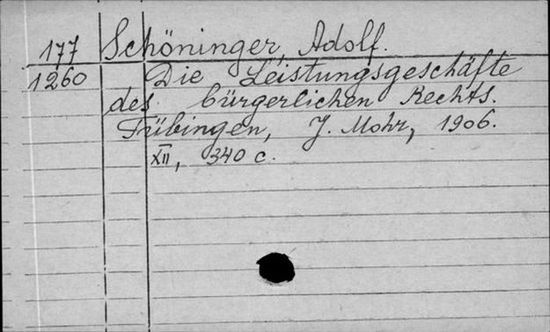 177 Schöninger, Adolf.
1260 Die Leistungsgeschäfte
des bürgerlichen Rechts.
Tübingen, J. Mohr, 1906.
XII, 340 c.